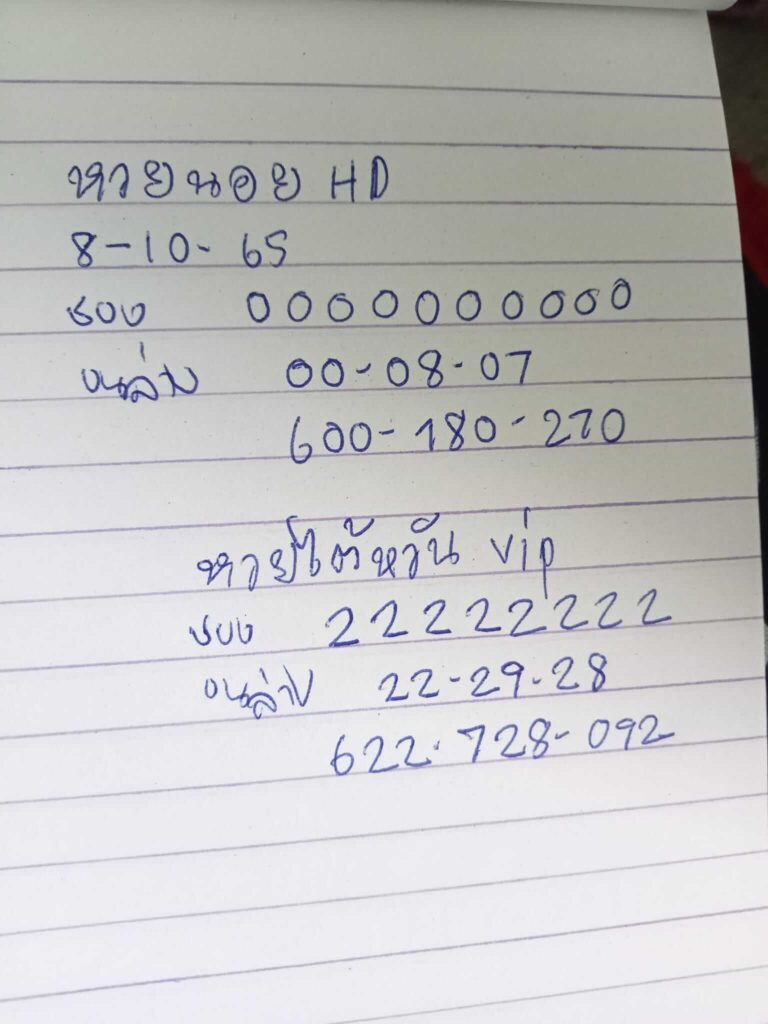 หวยนอย HD
8-10-65
ชอบ 0000000000
บนล่าง 00-08-07
600-180-270
หวยไต้หวัน vip
ชอบ 22222222
บนล่าง 22-29-28
622-728-092